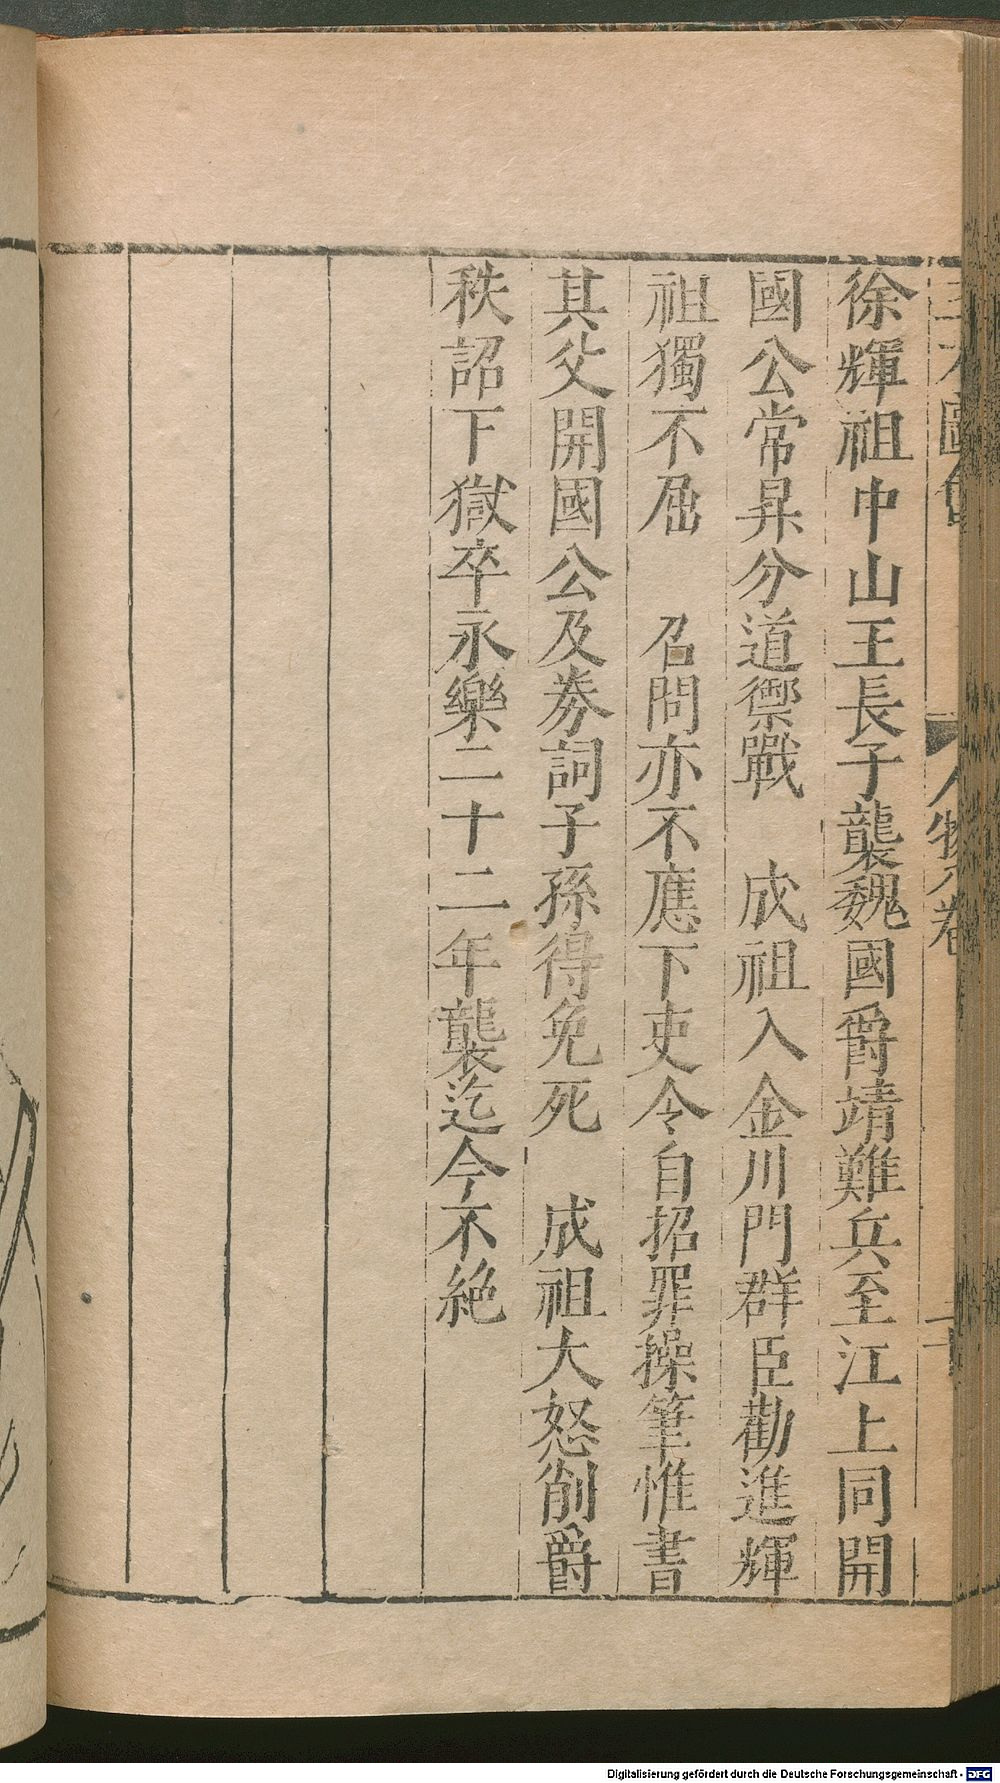 徐輝祖中山王長子襲魏國爵靖難兵至江上同開
國公常昇分道禦戰　成祖入金川門群臣勸進輝
祖獨不屈　召問亦不應下吏令自招罪操筆惟書
其父開國公及券詞子孫得免死　成祖大怒削爵
秩詔下獄卒永樂二十二年襲迄今不絶
人物八卷
Digitalisierung gefördert durch die Deutsche Forschungsgemeinschaft - DFG